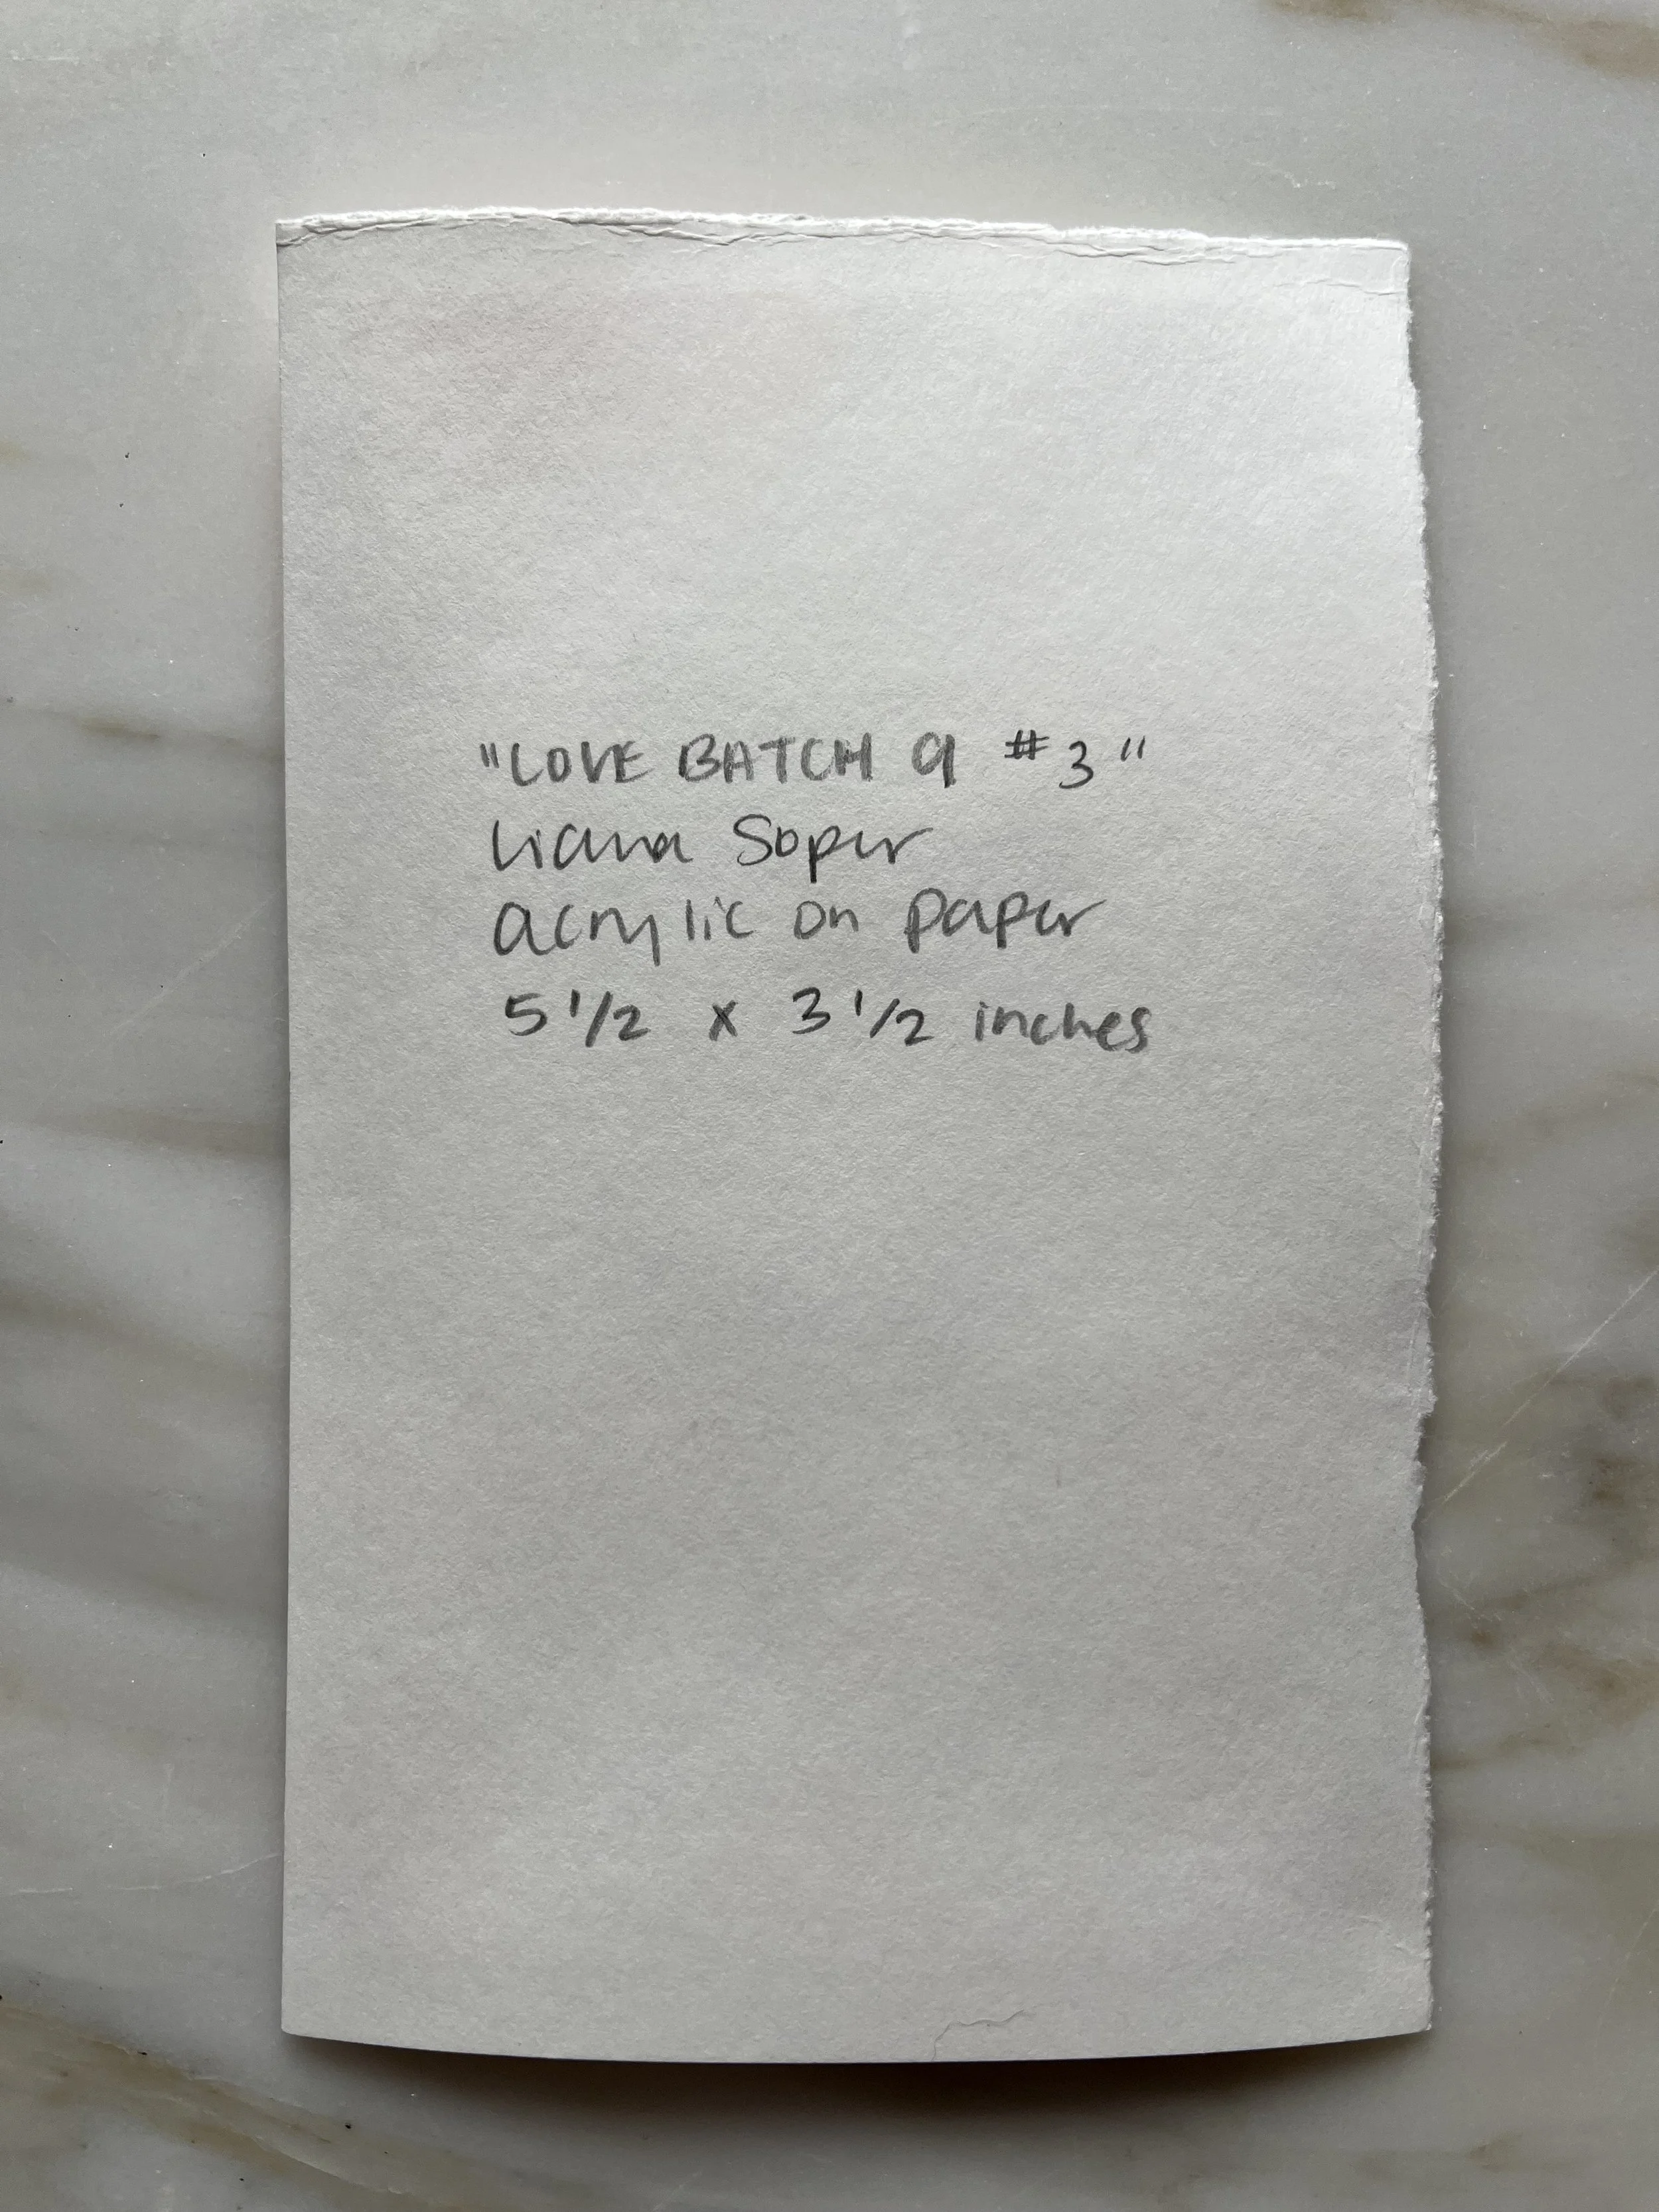 "LOVE BATCH 9 #3"
Liana Soper
acrylic on paper
5 1/2 x 3 1/2 inches